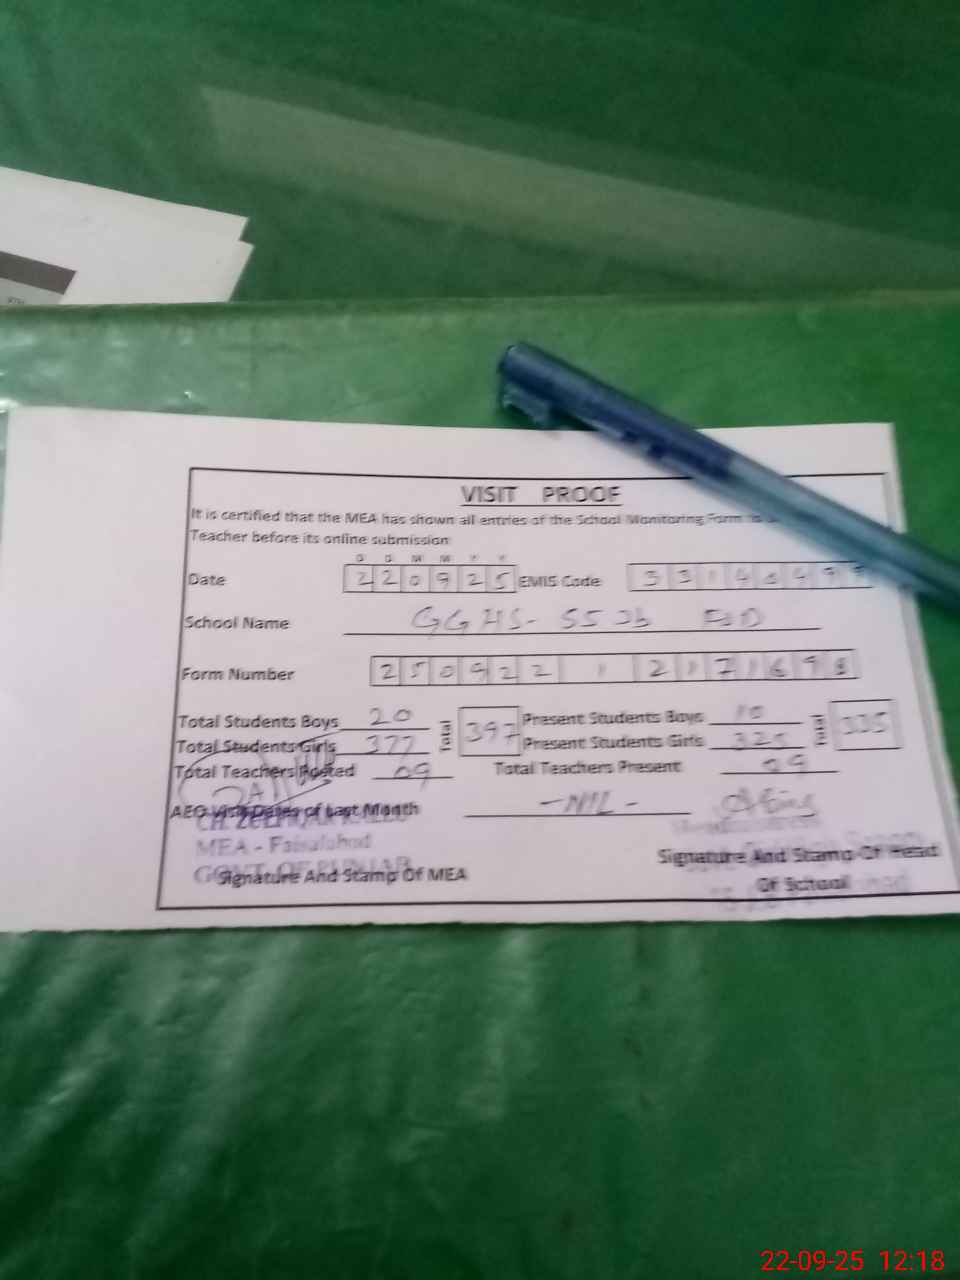 VISIT PROOF
It is certified that the MEA has shown all entries of the School Monitoring Form
Teacher before its online submission
D D M M Y Y
Date 220925 EMIS Code 3314
School Name GGHS- 55 Jb FSD
Form Number 250922 1 2171698
Total Students Boys 20 Total 397 Present Students Boys 10 Total 335
Total Students Girls 377 Present Students Girls 325
Total Teachers Posted 09 Total Teachers Present 09
AEO Visit Dates of Last Month -NIL-
CH. ZULFIQAR
MEA - Faisalabad
GOVT. OF PUNJAB
Signature And Stamp Of MEA
Signature And Stamp Of Head
Of School
22-09-25 12:18